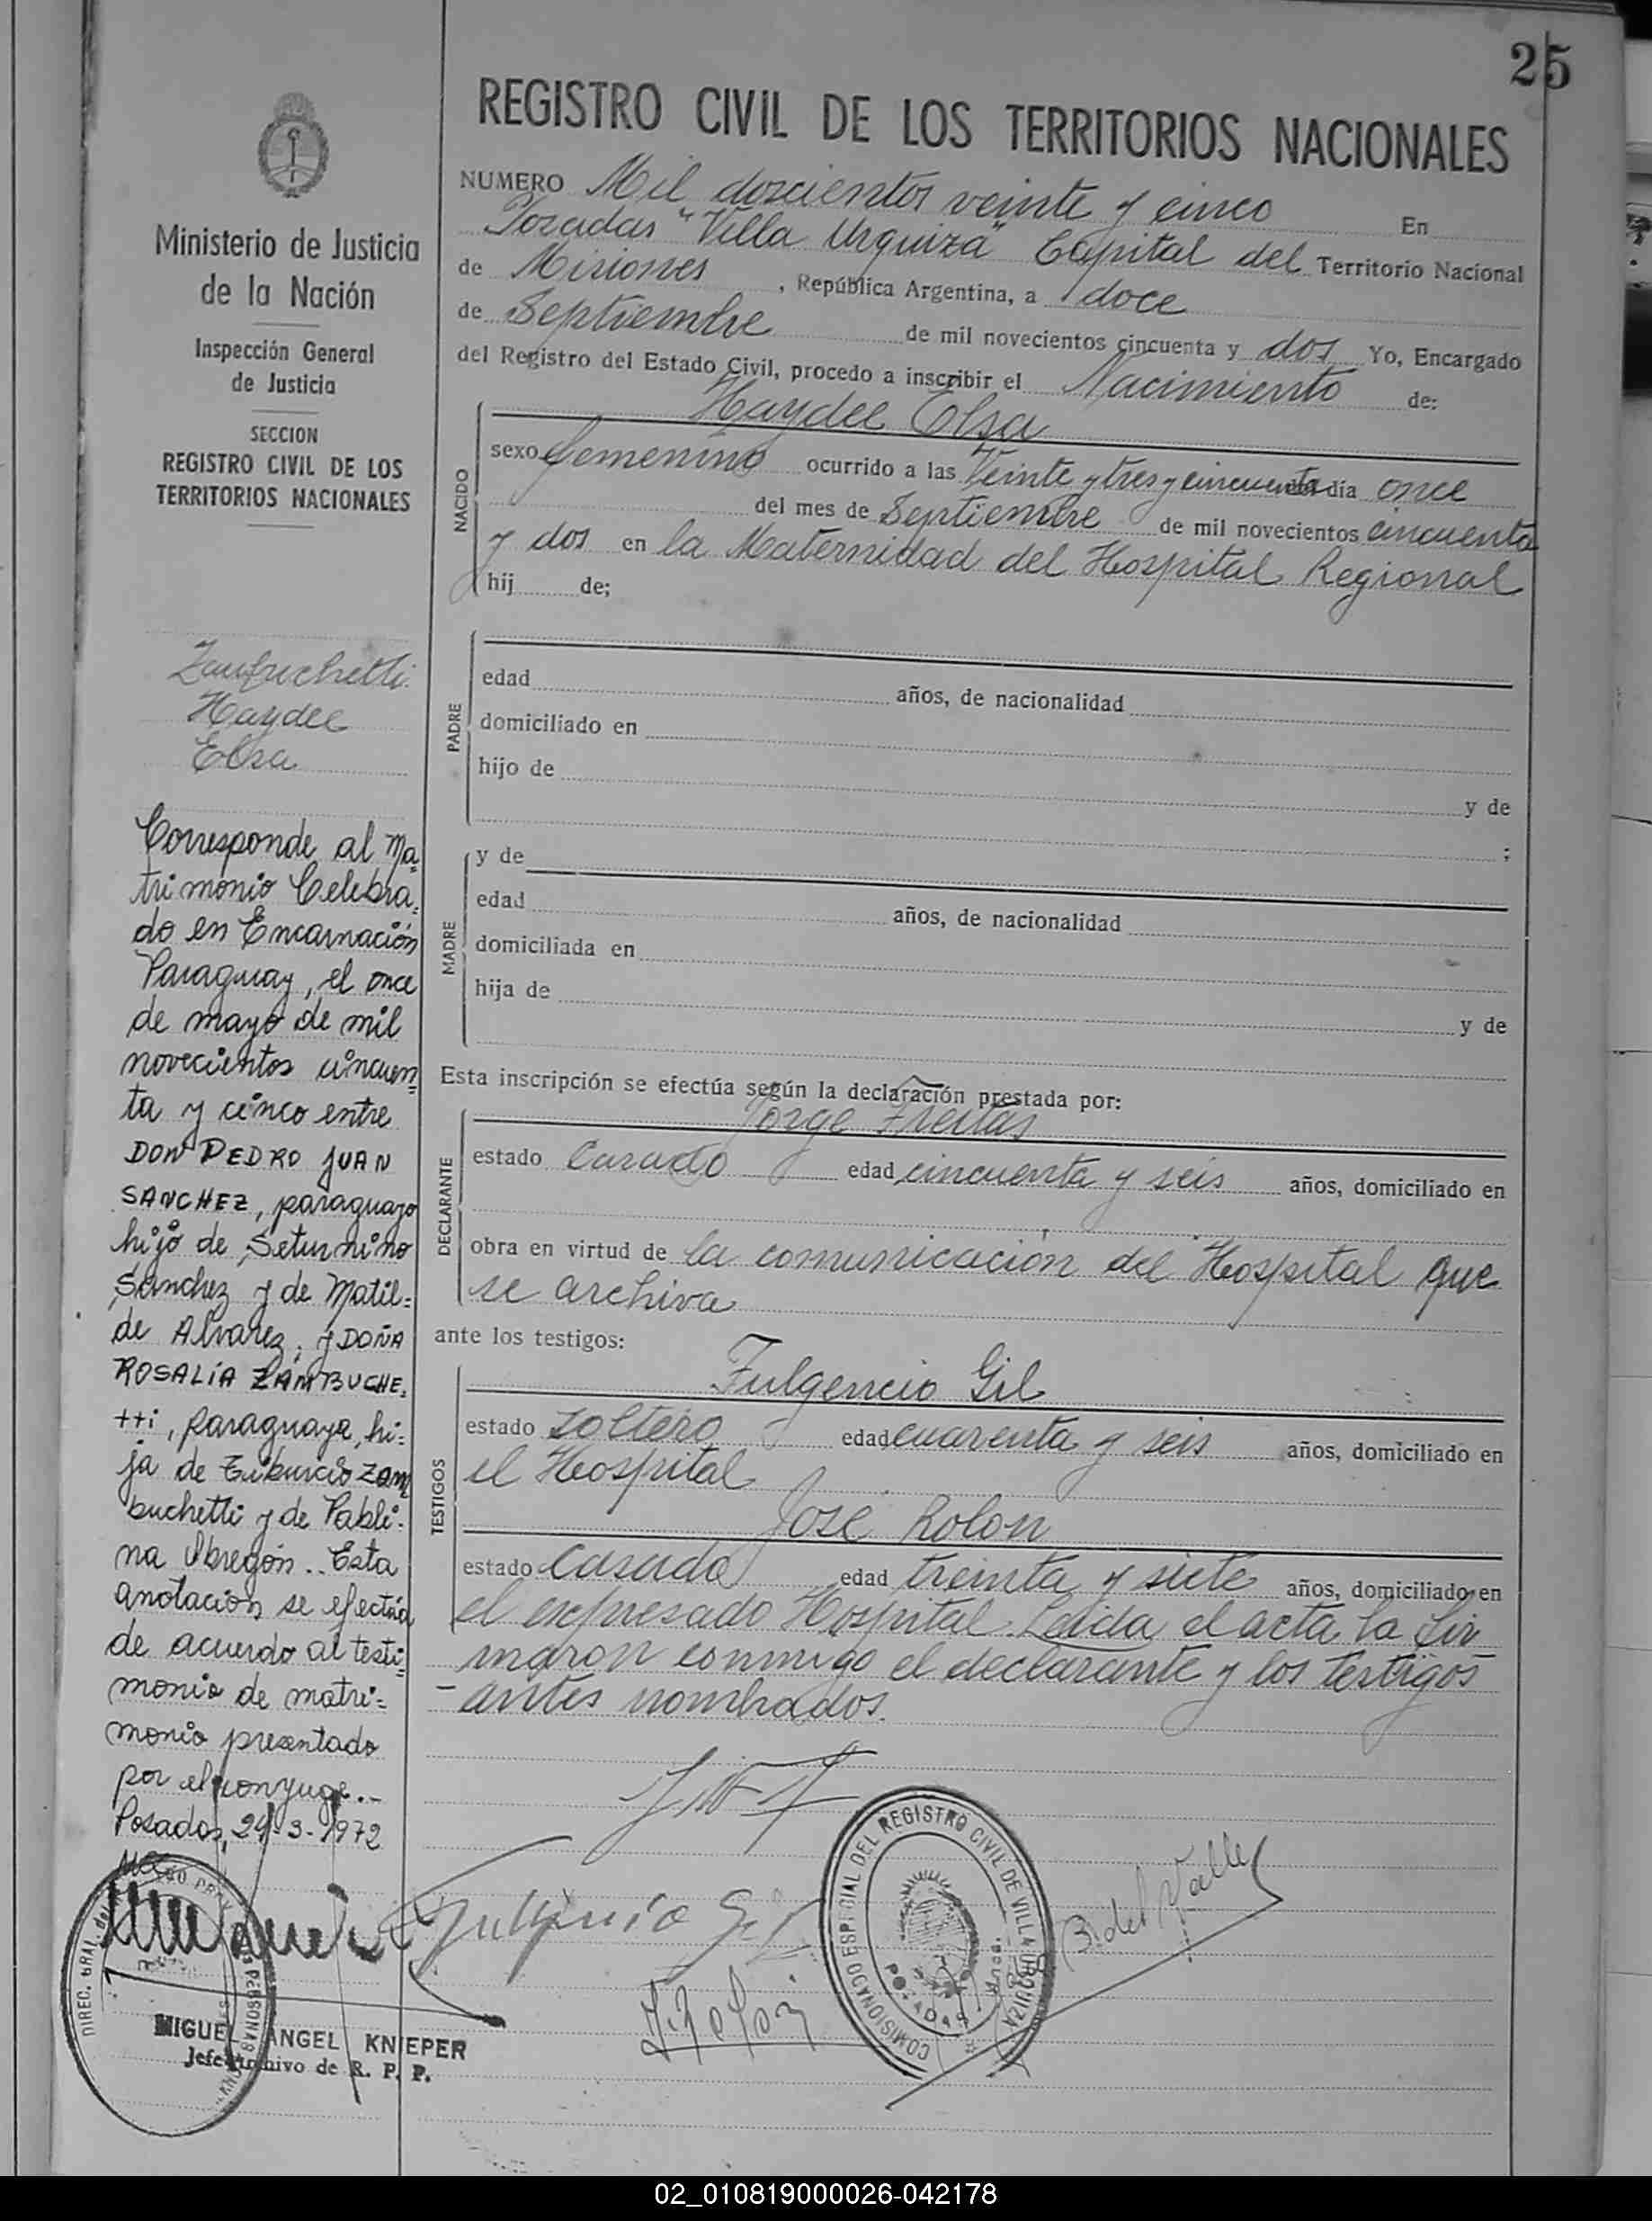 25
REGISTRO CIVIL DE LOS TERRITORIOS NACIONALES
Ministerio de Justicia
de la Nación
Inspección General
de Justicia
SECCION
REGISTRO CIVIL DE LOS
TERRITORIOS NACIONALES
Haydee
Elsa
Corresponde al Ma=
trimonio Celebra=
do en Encarnación
Paraguay, el once
de mayo de mil
novecientos cincuen=
ta y cinco entre
DON PEDRO JUAN
SANCHEZ, paraguayo
hijo de Seturnino
Sanchez y de Matil=
de Alvarez; y DOÑA
ROSALÍA ZAMBUCHE=
tti, paraguaya, hi=
ja de Tiburcio Zam
buchetti y de Pabli=
na Obregón.. Esta
anotación se efectúa
de acuerdo al testi=
monio de matri=
monio presentado
por el conyuge.-
Posadas, 24-3-1972
MIGUEL ANGEL KNIEPER
Jefe Archivo de R. P. P.
NUMERO Mil doscientos veinte y cinco En
Posadas "Villa Urquiza" Capital del Territorio Nacional
de Misiones, República Argentina, a doce
de Septiembre de mil novecientos cincuenta y dos Yo, Encargado
del Registro del Estado Civil, procedo a inscribir el Nacimiento de:
NACIDO
Haydee Elsa
sexo femenino ocurrido a las Veinte y tres y cincuenta día once
del mes de Septiembre de mil novecientos cincuenta
y dos en la Maternidad del Hospital Regional
hij de;
PADRE
edad años, de nacionalidad
domiciliado en
hijo de
y de
;
MADRE
y de
edad años, de nacionalidad
domiciliada en
hija de
y de
Esta inscripción se efectúa según la declaración prestada por:
DECLARANTE
Jorge Freitas
estado Casado edad cincuenta y seis años, domiciliado en
obra en virtud de la comunicación del Hospital que
se archiva
ante los testigos:
TESTIGOS
Fulgencio Gil
estado soltero edad cuarenta y seis años, domiciliado en
el Hospital
José Rolon
estado Casado edad treinta y siete años, domiciliado en
el expresado Hospital. Leida el acta la fir
maron conmigo el declarante y los testigos
- antes nombrados.
Fulgencio Gil
B. del Valle
COMISIONADO ESPECIAL DEL REGISTRO CIVIL DE VILLA URQUIZA
POSADAS
02_010819000026-042178